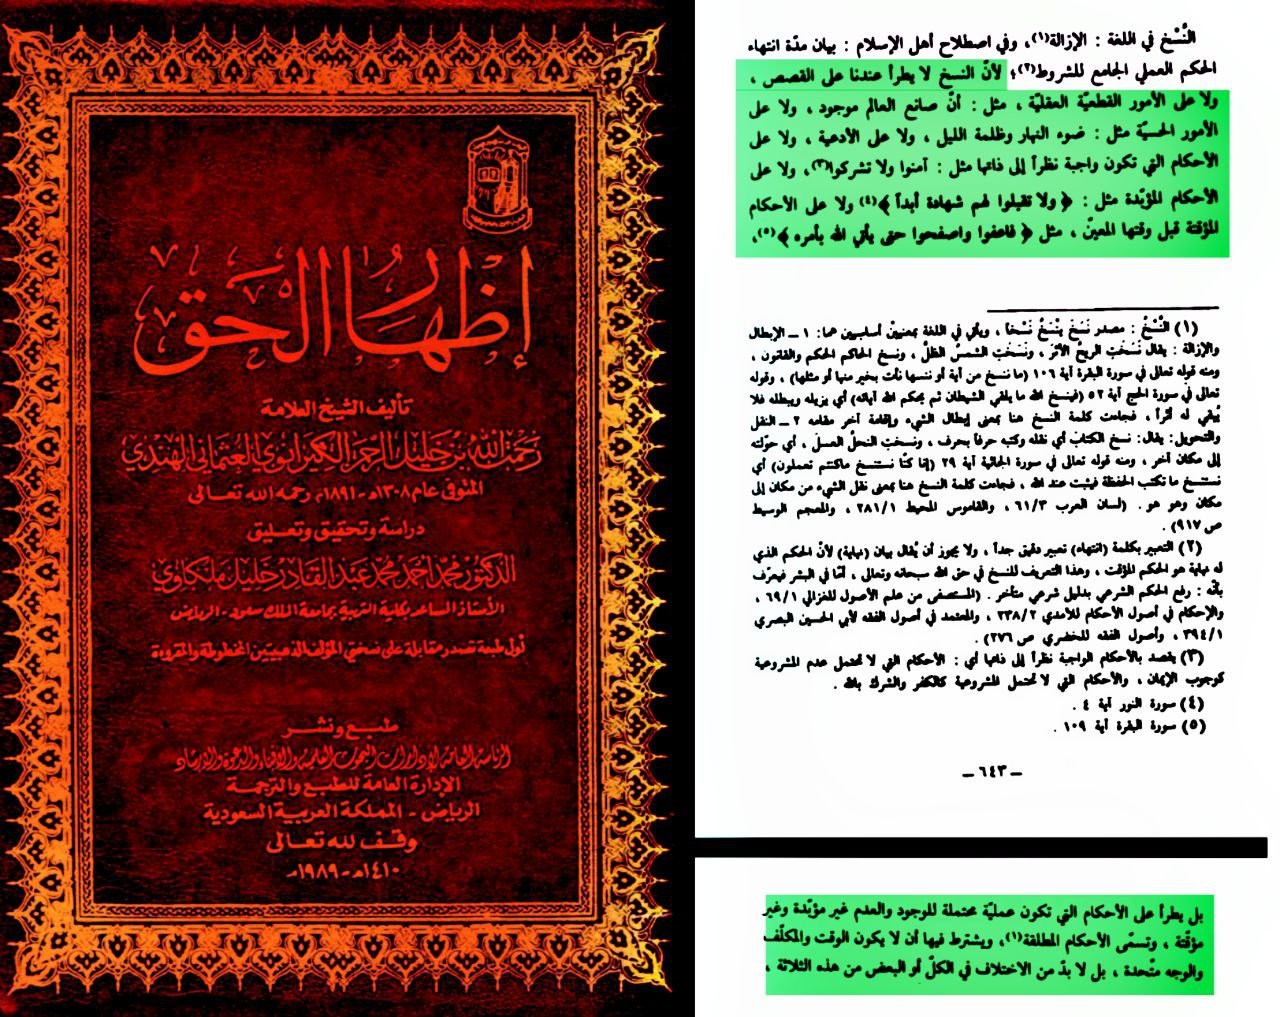 إظهار الحق
تأليف الشيخ العلامة
رحمت الله بن خليل الرحمن الكيرانوي العثماني الهندي
المتوفى عام ١٣٠٨هـ - ١٨٩١م رحمه الله تعالى
دراسة وتحقيق وتعليق
الدكتور محمد أحمد محمد عبد القادر خليل ملكاوي
الأستاذ المساعد بكلية التربية بجامعة الملك سعود - الرياض
أول طبعة تصدر مقابلة على نسختي المؤلف الذهبيتين المخطوطة والمقروءة
طبع ونشر
الرئاسة العامة لإدارات البحوث العلمية والإفتاء والدعوة والإرشاد
الإدارة العامة للطبع والترجمة
الرياض - المملكة العربية السعودية
وقف لله تعالى
١٤١٠هـ - ١٩٨٩م
النَّسْخ في اللغة : الإزالة(١)، وفي اصطلاح أهل الإسلام : بيان مدّة انتهاء
الحكم العملي الجامع للشروط(٢)؛ لأنّ النسخ لا يطرأ عندنا على القصص ،
ولا على الأمور القطعيّة العقليّة ، مثل : أنّ صانع العالم موجود ، ولا على
الأمور الحسيّة مثل : ضوء النهار وظلمة الليل ، ولا على الأدعية ، ولا على
الأحكام التي تكون واجبة نظراً إلى ذاتها مثل : آمنوا ولا تشركوا(٣)، ولا على
الأحكام المؤبّدة مثل : ﴿ ولا تقبلوا لهم شهادة أبداً ﴾(٤) ولا على الأحكام
المؤقتة قبل وقتها المعيّن ، مثل ﴿ فاعفوا واصفحوا حتى يأتي الله بأمره ﴾(٥)،
(١) النَّسْخُ : مصدر نَسَخَ يَنْسَخُ نَسْخاً ، ويأتي في اللغة بمعنيين أساسيين هما: ١ ــ الإبطال
والإزالة : يقال نَسَخَت الريحُ الأثرَ ، ونَسَخَت الشمسُ الظلَّ ، ونسخ الحاكم الحكم والقانون ،
ومنه قوله تعالى في سورة البقرة آية ١٠٦ (ما ننسخ من آية أو ننسها نأت بخير منها أو مثلها) ، وقوله
تعالى في سورة الحج آية ٥٢ (فينسخ الله ما يلقي الشيطان ثم يحكم الله آياته) أي يزيله ويبطله فلا
يُبقي له أثراً ، فجاءت كلمة النسخ هنا بمعنى إبطال الشيء وإقامة آخر مقامه ٢ ــ النقل
والتحويل: يقال: نسخ الكتاب أي نقله وكتبه حرفاً بحرف ، ونسخت النحلُ العسلَ ، أي حوّلته
إلى مكان آخر ، ومنه قوله تعالى في سورة الجاثية آية ٢٩ (إنا كنّا نستنسخ ماكنتم تعملون) أي
نستنسخ ما تكتب الحفظة فيثبت عند الله ، فجاءت كلمة النسخ هنا بمعنى نقل الشيء من مكان إلى
مكان وهو هو . (لسان العرب ٦١/٣ ، والقاموس المحيط ٢٨١/١ ، والمعجم الوسيط
ص ٩١٧) .
(٢) التعبير بكلمة (انتهاء) تعبير دقيق جداً ، ولا يجوز أن يُقال بيان (نهاية) لأنّ الحكم الذي
له نهاية هو الحكم المؤقت ، وهذا التعريف للنسخ في حق الله سبحانه وتعالى ، أمّا في البشر فيعرّف
بأنّه : رفع الحكم الشرعي بدليل شرعي متأخر . (المستصفى من علم الأصول للغزالي ٦٩/١ ،
والإحكام في أصول الأحكام للآمدي ٢٣٨/٢ ، والمعتمد في أصول الفقه لأبي الحسين البصري
٣٩٤/١ ، وأصول الفقه للخضري ص ٢٧٦) .
(٣) يقصد بالأحكام الواجبة نظراً إلى ذاتها أي : الأحكام التي لا تحتمل عدم المشروعية
كوجوب الإيمان ، والأحكام التي لا تحتمل المشروعية كالكفر والشرك بالله .
(٤) سورة النور آية ٤ .
(٥) سورة البقرة آية ١٠٩ .
ــ ٦٤٣ ــ
بل يطرأ على الأحكام التي تكون عمليّة محتملة للوجود والعدم غير مؤبّدة وغير
مؤقتة ، وتسمّى الأحكام المطلقة(١)، ويشترط فيها أن لا يكون الوقت والمكلّف
والوجه متّحدة ، بل لا بدّ من الاختلاف في الكلّ أو البعض من هذه الثلاثة ،